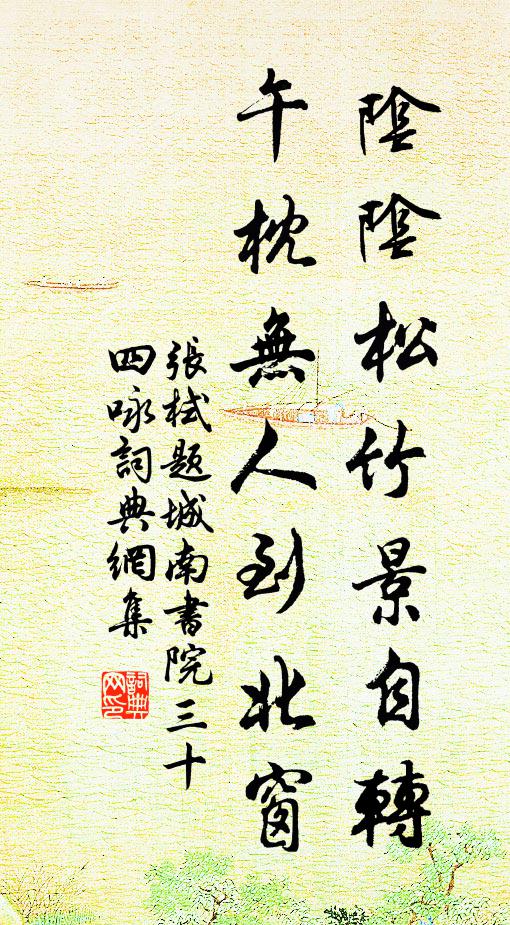 陰陰松竹景自轉
午枕無人到北窗
張栻題城南書院三十
四咏詞典網集
詞典
网印